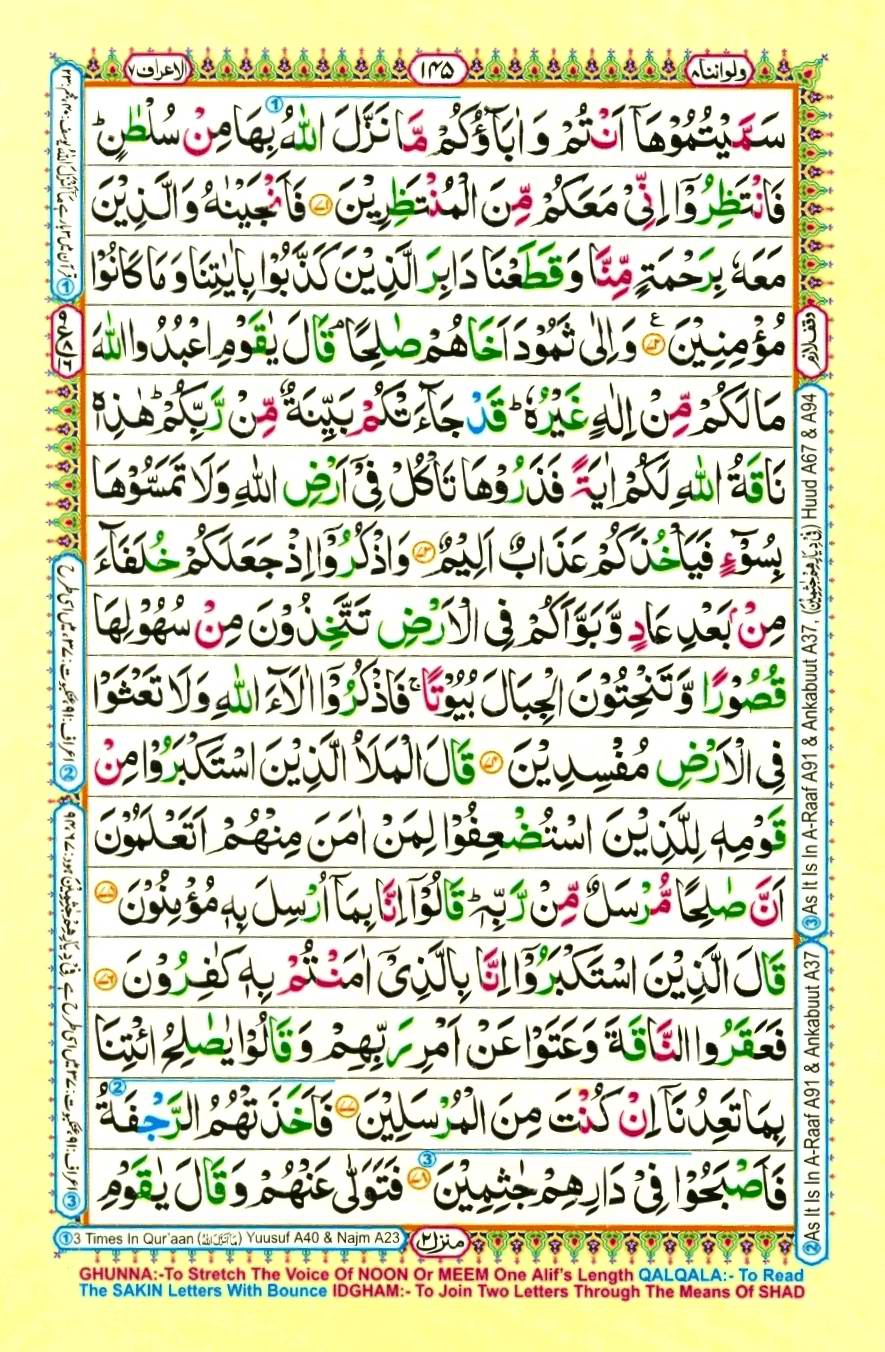 ولواننا ٨
١٤٥
الاعراف ٧
سَمَّيْتُمُوْهَاۤ اَنْتُمْ وَ اٰبَآؤُكُمْ مَّا نَزَّلَ اللّٰهُ بِهَا مِنْ سُلْطٰنٍؕ
فَانْتَظِرُوْۤا اِنِّیْ مَعَكُمْ مِّنَ الْمُنْتَظِرِیْنَ ﴿٧١﴾ فَاَنْجَیْنٰهُ وَ الَّذِیْنَ
مَعَهٗ بِرَحْمَةٍ مِّنَّا وَ قَطَعْنَا دَابِرَ الَّذِیْنَ كَذَّبُوْا بِاٰیٰتِنَا وَ مَا كَانُوْا
مُؤْمِنِیْنَ ﴿٧٢﴾ ع وَ اِلٰی ثَمُوْدَ اَخَاهُمْ صٰلِحًاۘ قَالَ یٰقَوْمِ اعْبُدُوا اللّٰهَ
مَا لَكُمْ مِّنْ اِلٰهٍ غَیْرُهٗؕ قَدْ جَآءَتْكُمْ بَیِّنَةٌ مِّنْ رَّبِّكُمْؕ هٰذِهٖ
نَاقَةُ اللّٰهِ لَكُمْ اٰیَةً فَذَرُوْهَا تَاْكُلْ فِیْۤ اَرْضِ اللّٰهِ وَ لَا تَمَسُّوْهَا
بِسُوْٓءٍ فَیَاْخُذَكُمْ عَذَابٌ اَلِیْمٌ ﴿٧٣﴾ وَ اذْكُرُوْۤا اِذْ جَعَلَكُمْ خُلَفَآءَ
مِنْۢ بَعْدِ عَادٍ وَّ بَوَّاَكُمْ فِی الْاَرْضِ تَتَّخِذُوْنَ مِنْ سُهُوْلِهَا
قُصُوْرًا وَّ تَنْحِتُوْنَ الْجِبَالَ بُیُوْتًاۚ فَاذْكُرُوْۤا اٰلَآءَ اللّٰهِ وَ لَا تَعْثَوْا
فِی الْاَرْضِ مُفْسِدِیْنَ ﴿٧٤﴾ قَالَ الْمَلَاُ الَّذِیْنَ اسْتَكْبَرُوْا مِنْ
قَوْمِهٖ لِلَّذِیْنَ اسْتُضْعِفُوْا لِمَنْ اٰمَنَ مِنْهُمْ اَتَعْلَمُوْنَ
اَنَّ صٰلِحًا مُّرْسَلٌ مِّنْ رَّبِّهٖؕ قَالُوْۤا اِنَّا بِمَاۤ اُرْسِلَ بِهٖ مُؤْمِنُوْنَ ﴿٧٥﴾
قَالَ الَّذِیْنَ اسْتَكْبَرُوْۤا اِنَّا بِالَّذِیْۤ اٰمَنْتُمْ بِهٖ كٰفِرُوْنَ ﴿٧٦﴾
فَعَقَرُوا النَّاقَةَ وَ عَتَوْا عَنْ اَمْرِ رَبِّهِمْ وَ قَالُوْا یٰصٰلِحُ ائْتِنَا
بِمَا تَعِدُنَاۤ اِنْ كُنْتَ مِنَ الْمُرْسَلِیْنَ ﴿٧٧﴾ فَاَخَذَتْهُمُ الرَّجْفَةُ
فَاَصْبَحُوْا فِیْ دَارِهِمْ جٰثِمِیْنَ ﴿٧٨﴾ فَتَوَلّٰی عَنْهُمْ وَ قَالَ یٰقَوْمِ
وقف لازم
③ As It Is In A-Raaf A91 & Ankabuut A37, (فِیْ دِیَارِهِمْ جٰثِمِیْنَ) Huud A67 & A94
② As It Is In A-Raaf A91 & Ankabuut A37
① 3 Times In Qur'aan (مَاۤ اَنْزَلَ اللّٰهُ) Yuusuf A40 & Najm A23
منزل ٢
GHUNNA:-To Stretch The Voice Of NOON Or MEEM One Alif's Length QALQALA:- To Read
The SAKIN Letters With Bounce IDGHAM:- To Join Two Letters Through The Means Of SHAD